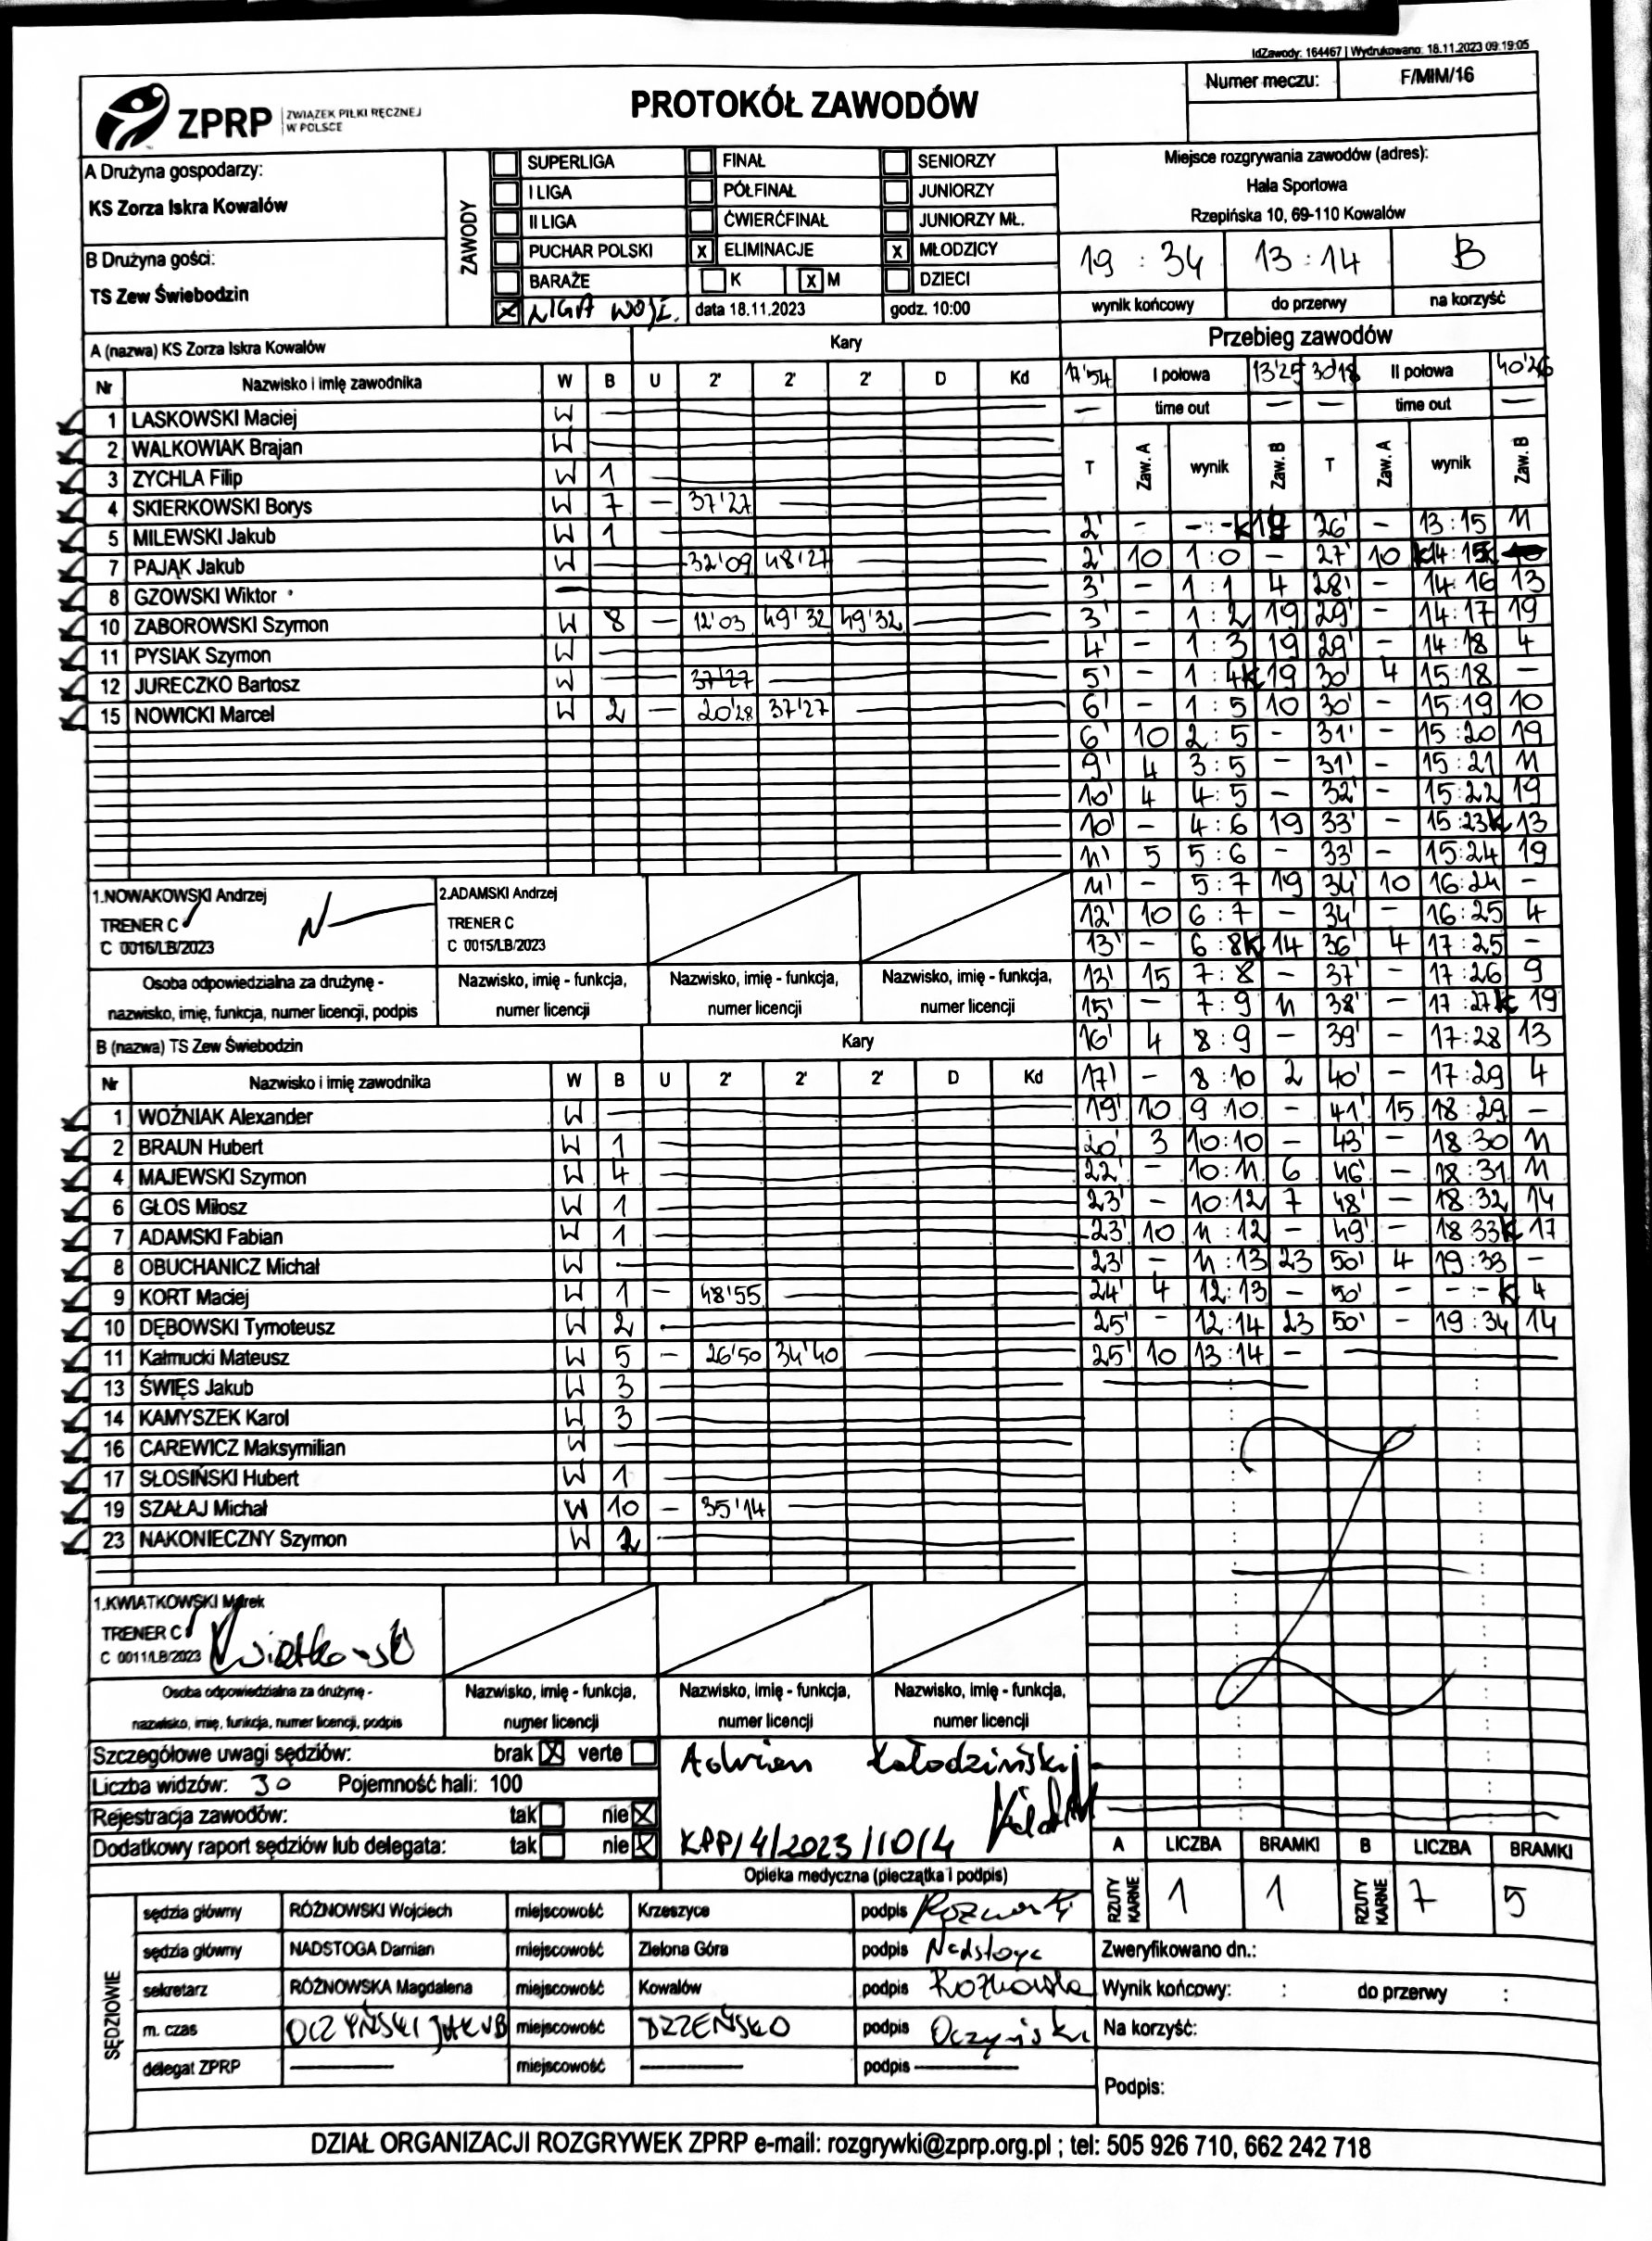 IdZawody: 164467 | Wydrukowano: 18.11.2023 09:19:05
ZPRP ZWIĄZEK PIŁKI RĘCZNEJ W POLSCE
PROTOKÓŁ ZAWODÓW
Numer meczu: F/MłM/16
A Drużyna gospodarzy:
KS Zorza Iskra Kowalów
B Drużyna gości:
TS Zew Świebodzin
ZAWODY
SUPERLIGA FINAŁ SENIORZY
I LIGA PÓŁFINAŁ JUNIORZY
II LIGA ĆWIERĆFINAŁ JUNIORZY MŁ.
PUCHAR POLSKI x ELIMINACJE x MŁODZICY
BARAŻE K x M DZIECI
x LIGA WOJ. data 18.11.2023 godz. 10:00
Miejsce rozgrywania zawodów (adres):
Hala Sportowa
Rzepińska 10, 69-110 Kowalów
19 : 34 13 : 14 B
wynik końcowy do przerwy na korzyść
A (nazwa) KS Zorza Iskra Kowalów Kary
Nr Nazwisko i imię zawodnika W B U 2' 2' 2' D Kd
1 LASKOWSKI Maciej W
2 WALKOWIAK Brajan W
3 ZYCHLA Filip W 1
4 SKIERKOWSKI Borys W 7 – 37'27
5 MILEWSKI Jakub W 1
7 PAJĄK Jakub W 32'09 48'27
8 GZOWSKI Wiktor
10 ZABOROWSKI Szymon W 8 – 12'03 49'32 49'32
11 PYSIAK Szymon W
12 JURECZKO Bartosz W 37'27
15 NOWICKI Marcel W 2 – 20'28 37'27
1.NOWAKOWSKI Andrzej
TRENER C
C 0016/LB/2023
2.ADAMSKI Andrzej
TRENER C
C 0015/LB/2023
Osoba odpowiedzialna za drużynę -
nazwisko, imię, funkcja, numer licencji, podpis
Nazwisko, imię - funkcja, numer licencji
Nazwisko, imię - funkcja, numer licencji
Nazwisko, imię - funkcja, numer licencji
B (nazwa) TS Zew Świebodzin Kary
Nr Nazwisko i imię zawodnika W B U 2' 2' 2' D Kd
1 WOŹNIAK Alexander W
2 BRAUN Hubert W 1
4 MAJEWSKI Szymon W 4
6 GŁOS Miłosz W 1
7 ADAMSKI Fabian W 1
8 OBUCHANICZ Michał W
9 KORT Maciej W 1 – 48'55
10 DĘBOWSKI Tymoteusz W 2
11 Kałmucki Mateusz W 5 – 26'50 34'40
13 ŚWIĘS Jakub W 3
14 KAMYSZEK Karol W 3
16 CAREWICZ Maksymilian W
17 SŁOSIŃSKI Hubert W 1
19 SZAŁAJ Michał W 10 – 35'14
23 NAKONIECZNY Szymon W 2
1.KWIATKOWSKI Marek
TRENER C
C 0011/LB/2023
Kwiatkowski
Osoba odpowiedzialna za drużynę -
nazwisko, imię, funkcja, numer licencji, podpis
Nazwisko, imię - funkcja, numer licencji
Nazwisko, imię - funkcja, numer licencji
Nazwisko, imię - funkcja, numer licencji
Przebieg zawodów
11'54 I połowa 13'25 30'18 II połowa 40'26
– time out – – time out –
T Zaw. A wynik Zaw. B T Zaw. A wynik Zaw. B
2' – – : – K 19 26' – 13:15 11
2' 10 1:0 – 27' 10 K 14:15
3' – 1:1 4 28' – 14:16 13
3' – 1:2 19 29' – 14:17 19
4' – 1:3 19 29' – 14:18 4
5' – 1:4K 19 30' 4 15:18 –
6' – 1:5 10 30' – 15:19 10
6' 10 2:5 – 31' – 15:20 19
9' 4 3:5 – 31' – 15:21 11
10' 4 4:5 – 32' – 15:22 19
10' – 4:6 19 33' – 15:23K 13
11' 5 5:6 – 33' – 15:24 19
11' – 5:7 19 34' 10 16:24 –
12' 10 6:7 – 34' – 16:25 4
13' – 6:8K 14 36' 4 17:25 –
13' 15 7:8 – 37' – 17:26 9
15' – 7:9 11 38' – 17:27K 19
16' 4 8:9 – 39' – 17:28 13
17' – 8:10 2 40' – 17:29 4
19' 10 9:10 – 41' 15 18:29 –
20' 3 10:10 – 43' – 18:30 11
22' – 10:11 6 46' – 18:31 11
23' – 10:12 7 48' – 18:32 14
23' 10 11:12 – 49' – 18:33K 17
23' – 11:13 23 50' 4 19:33 –
24' 4 12:13 – 50' – – : – K 4
25' – 12:14 23 50' – 19:34 14
25' 10 13:14 –
Szczegółowe uwagi sędziów: brak x verte
Liczba widzów: 30 Pojemność hali: 100
Rejestracja zawodów: tak nie x
Dodatkowy raport sędziów lub delegata: tak nie x
Adrian Kołodziński
KPP/4/2023/10/4
Opieka medyczna (pieczątka i podpis)
A LICZBA BRAMKI B LICZBA BRAMKI
RZUTY KARNE 1 1 RZUTY KARNE 7 5
SĘDZIOWIE
sędzia główny RÓŻNOWSKI Wojciech miejscowość Krzeszyce podpis
sędzia główny NADSTOGA Damian miejscowość Zielona Góra podpis Nadstoga
sekretarz RÓŻNOWSKA Magdalena miejscowość Kowalów podpis Różnowska
m. czas OCZYŃSKI JAKUB miejscowość DRZEŃSKO podpis Oczyński
delegat ZPRP miejscowość podpis
Zweryfikowano dn.:
Wynik końcowy: : do przerwy :
Na korzyść:
Podpis:
DZIAŁ ORGANIZACJI ROZGRYWEK ZPRP e-mail: rozgrywki@zprp.org.pl ; tel: 505 926 710, 662 242 718